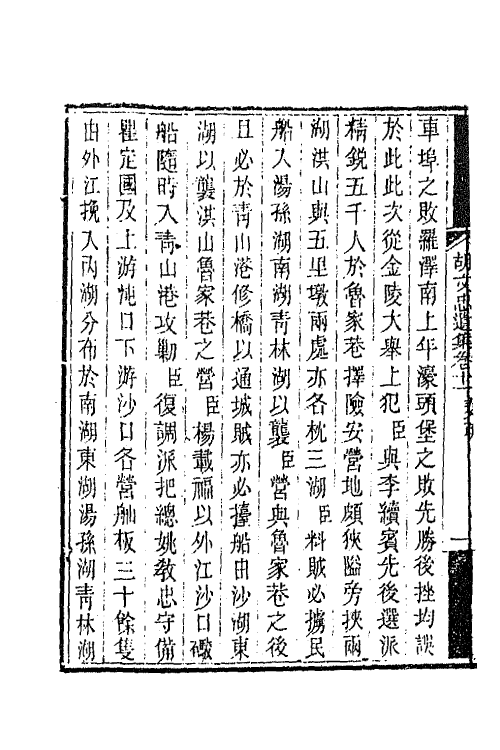 車埠之敗羅澤南上年濠頭堡之敗先勝後挫均誤
於此此次從金陵大舉上犯臣與李續賓先後選派
精銳五千人於魯家巷擇險安營地頗狹隘旁挾兩
湖洪山與五里墩兩處亦各枕三湖臣料賊必擄民
船入湯孫湖南湖靑林湖以襲臣營與魯家巷之後
且必於靑山港修橋以通城賊亦必擡船由沙湖東
湖以襲洪山魯家巷之營臣楊載福以外江沙口礮
船隨時入靑山港攻勦臣復調派把總姚敎忠守備
瞿定國及上游沌口下游沙口各營舢板三十餘隻
由外江挽入內湖分布於南湖東湖湯孫湖靑林湖
胡文忠遺集卷十